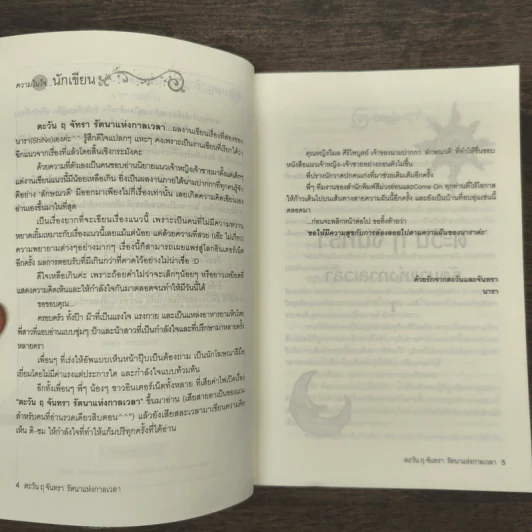 ความในใจ...นักเขียน
ตะวัน ฤ จันทรา รัตนาแห่งกาลเวลา...ผลงานเขียนเรื่องที่สองของ
นารา(ShiNe)เองค่ะ^^ รู้สึกดีใจแปลกๆ แหะๆ คงเพราะเป็นงานเขียนที่เรียกได้ว่า
ฉีกแนวจากเรื่องที่แล้วโดยสิ้นเชิงกระมังคะ
ด้วยความที่ตัวเองเป็นคนชอบอ่านนิยายแนวเจ้าหญิงเจ้าชายมาตั้งแต่เด็กๆ
แต่งานเขียนแนวนี้มีน้อยเหลือเกิน ยิ่งเป็นผลงานภายใต้นามปากกาที่ทุกคนรู้จัก
ดีอย่าง 'ลักษณวดี' มีออกมาเพียงไม่กี่เรื่องเท่านั้น เลยเกิดความคิดเขียนเอง
อ่านเองขึ้นมาในที่สุด
เป็นเรื่องยากที่จะเขียนเรื่องแนวนี้ เพราะเป็นคนที่ไม่มีความหวาน
หยาดเยิ้มเหมาะกับเรื่องแนวนี้เลยแม้แต่น้อย แต่ด้วยความที่สวย (เอ๊ย ไม่เกี่ยว)
ความพยายามต่างๆอย่างมากๆ เรื่องนี้ก็สามารถเผยแพร่สู่โลกอินเตอร์เน็ต
อีกครั้ง ผลการตอบรับที่มีเกินกว่าที่คาดไว้อย่างไม่น่าเชื่อ :D
ดีใจเหลือเกินค่ะ เพราะถ้อยคำไม่ว่าจะเล็กๆน้อยๆ หรือยาวเหยียดที่
แสดงความคิดเห็นและให้กำลังใจกันมาตลอดจนทำให้มีวันนี้ได้
ขอขอบคุณ...
ครอบครัว ทั้งป๊า ม้าที่เป็นแรงใจ แรงกาย และเป็นแหล่งอาหารยามหิวโหย
พี่สาวที่แอบอ่านแบบซุ่มๆ ป้าและน้าสาวที่เป็นกำลังใจและที่ปรึกษามาหลายครั้ง
หลายครา
เพื่อนๆ ที่เร่งให้อัพแบบเห็นหน้าปุ๊บเป็นต้องถาม เป็นนักโฆษณาฝีมือ
เยี่ยมโดยไม่มีค่าแรงแต่ประการใด และกำลังใจแบบท้วมท้น
อีกทั้งเพื่อนๆ พี่ๆ น้องๆ ชาวอินเตอร์เน็ตทั้งหลาย ที่เสียค่าไฟเปิดเรื่อง
"ตะวัน ฤ จันทรา รัตนาแห่งกาลเวลา" ขึ้นมาอ่าน (เสียสายตาเป็นของแถม
สำหรับคนที่อ่านรวดเดียวสิบตอน^^") แล้วยังเสียสละเวลามาเขียนความคิด
เห็น ติ-ชม ให้กำลังใจที่ทำให้แก้มปริทุกครั้งที่ได้อ่าน
4 ตะวัน ฤ จันทรา รัตนาแห่งกาลเวลา
คุณหญิงวิมล ศิริไพบูลย์ เจ้าของนามปากกา 'ลักษณวดี' ที่ทำให้ชื่นชอบ
หนังสือแนวเจ้าหญิง-เจ้าชายอย่างถอนตัวไม่ขึ้น
ที่ปรางนักวาดปกคนเก่งที่มาช่วยเติมเต็มอีกครั้ง
พี่ๆ ทีมงานของสำนักพิมพ์สีม่วงอ่อนแต่Come On ทุกท่านที่ให้โอกาส
ให้ก้าวเดินไปบนเส้นทางสายความฝันนี้อีกครั้ง และยังเป็นบ้านที่อบอุ่นเช่นนี้
ตลอดมา
...ก่อนจะพลิกหน้าต่อไป ขอทิ้งท้ายว่า
'ขอให้มีความสุขกับการล่องลอยไปตามความฝันของนาราค่ะ'
ด้วยรักจากตะวันและจันทรา
นารา
ตะวัน ฤ จันทรา รัตนาแห่งกาลเวลา 5